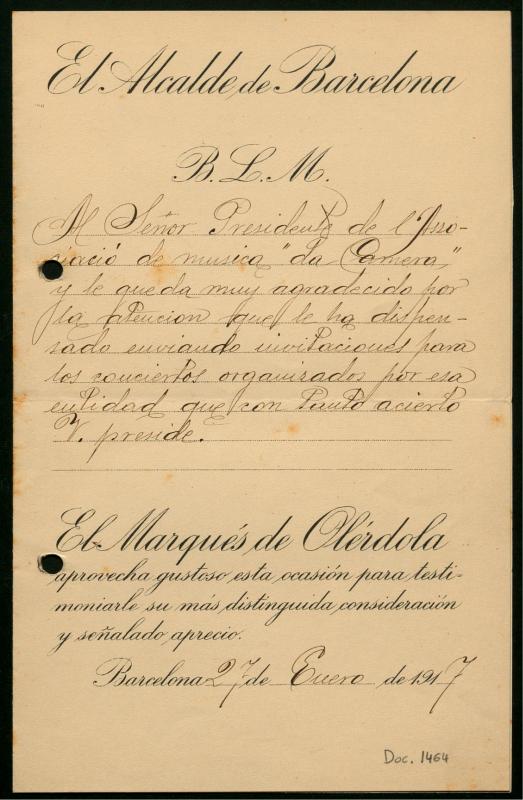 El Alcalde de Barcelona
B. L. M.
Al Señor Presidente de l'Asso-
ciació de musica "da Camera,"
y le queda muy agradecido por
la atencion que le ha dispen-
sado enviando invitaciones para
los conciertos organizados por esa
entidad que con tanto acierto
V. preside.
El Marqués de Olérdola
aprovecha gustoso esta ocasión para testi-
moniarle su más distinguida consideración
y señalado aprecio.
Barcelona 27 de Enero de 1917
Doc. 1464